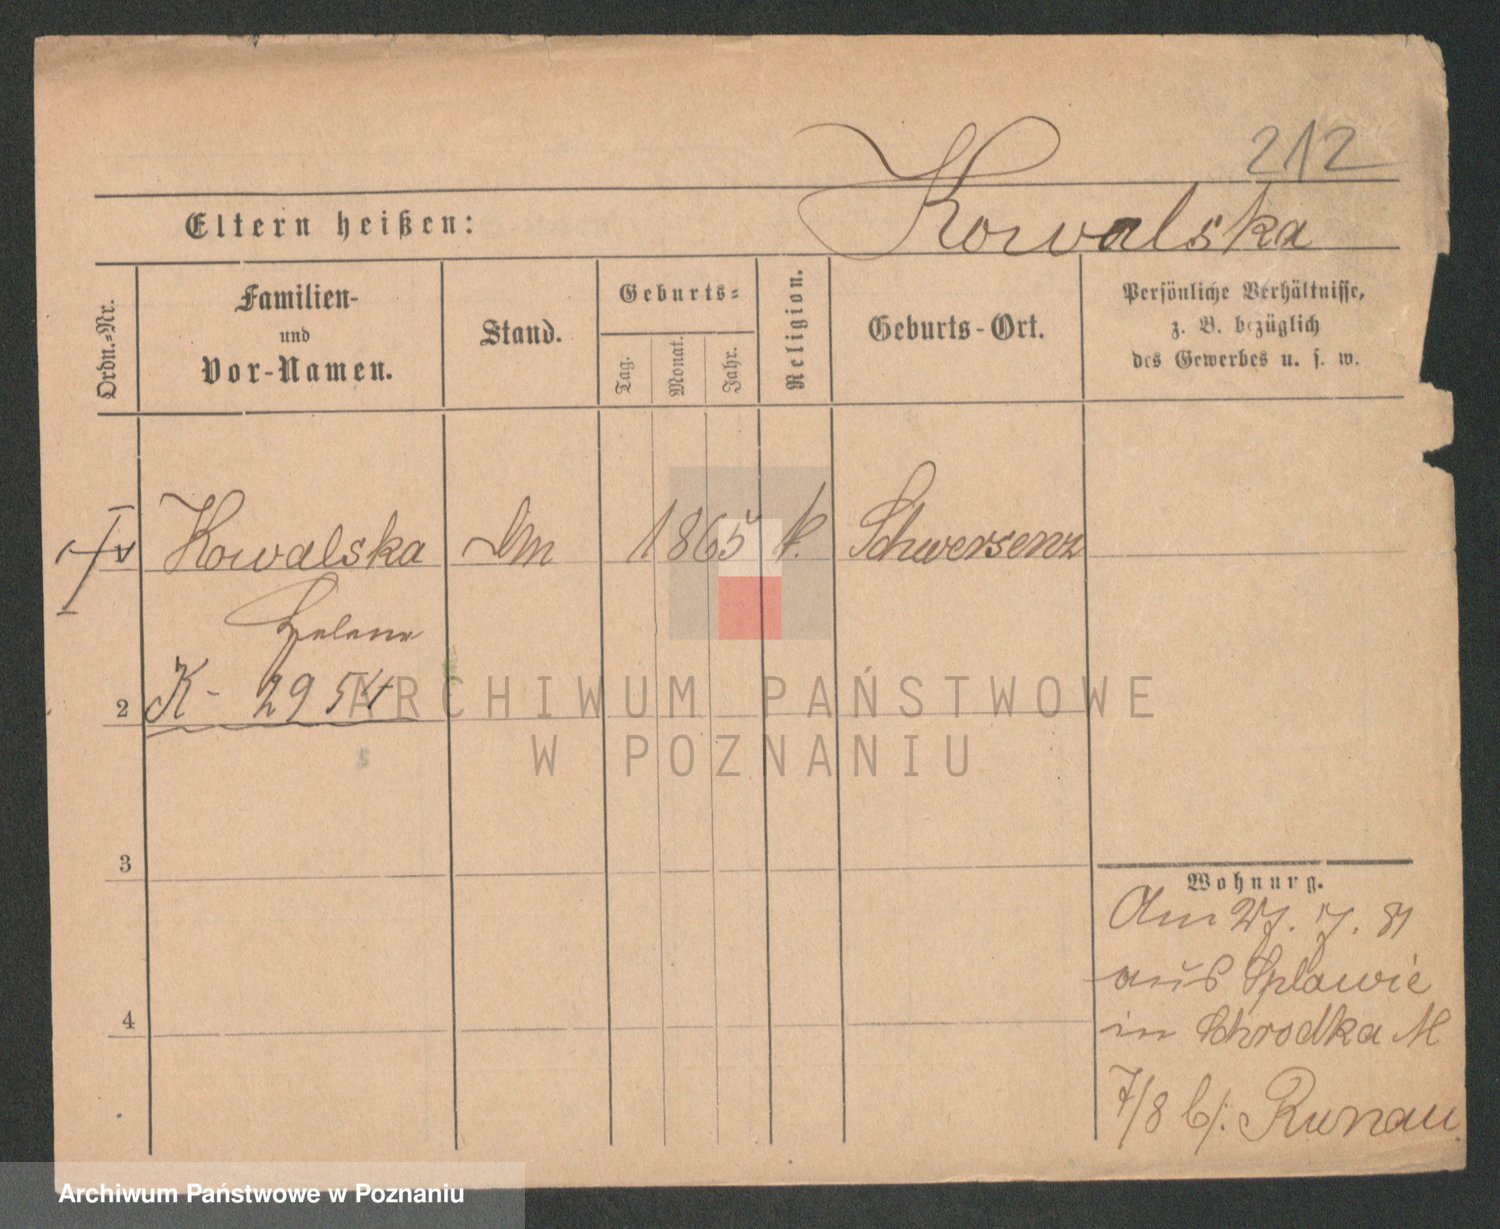 212
Kowalska
Eltern heißen:
Ordn.-Nr.
Familien-
und
Vor-Namen.
Stand.
Geburts-
Tag.
Monat.
Jahr.
Religion.
Geburts-Ort.
Persönliche Verhältnisse,
z. B. bezüglich
des Gewerbes u. s. w.
Kowalska 1865 k. Schwersenz
Helene
2 K- 2954
ARCHIWUM PAŃSTWOWE
W POZNANIU
3
Wohnung.
Am 27. 7. 81
aus Splawie
4
in Schrodka M
7/8 b/: Runau
Archiwum Państwowe w Poznaniu